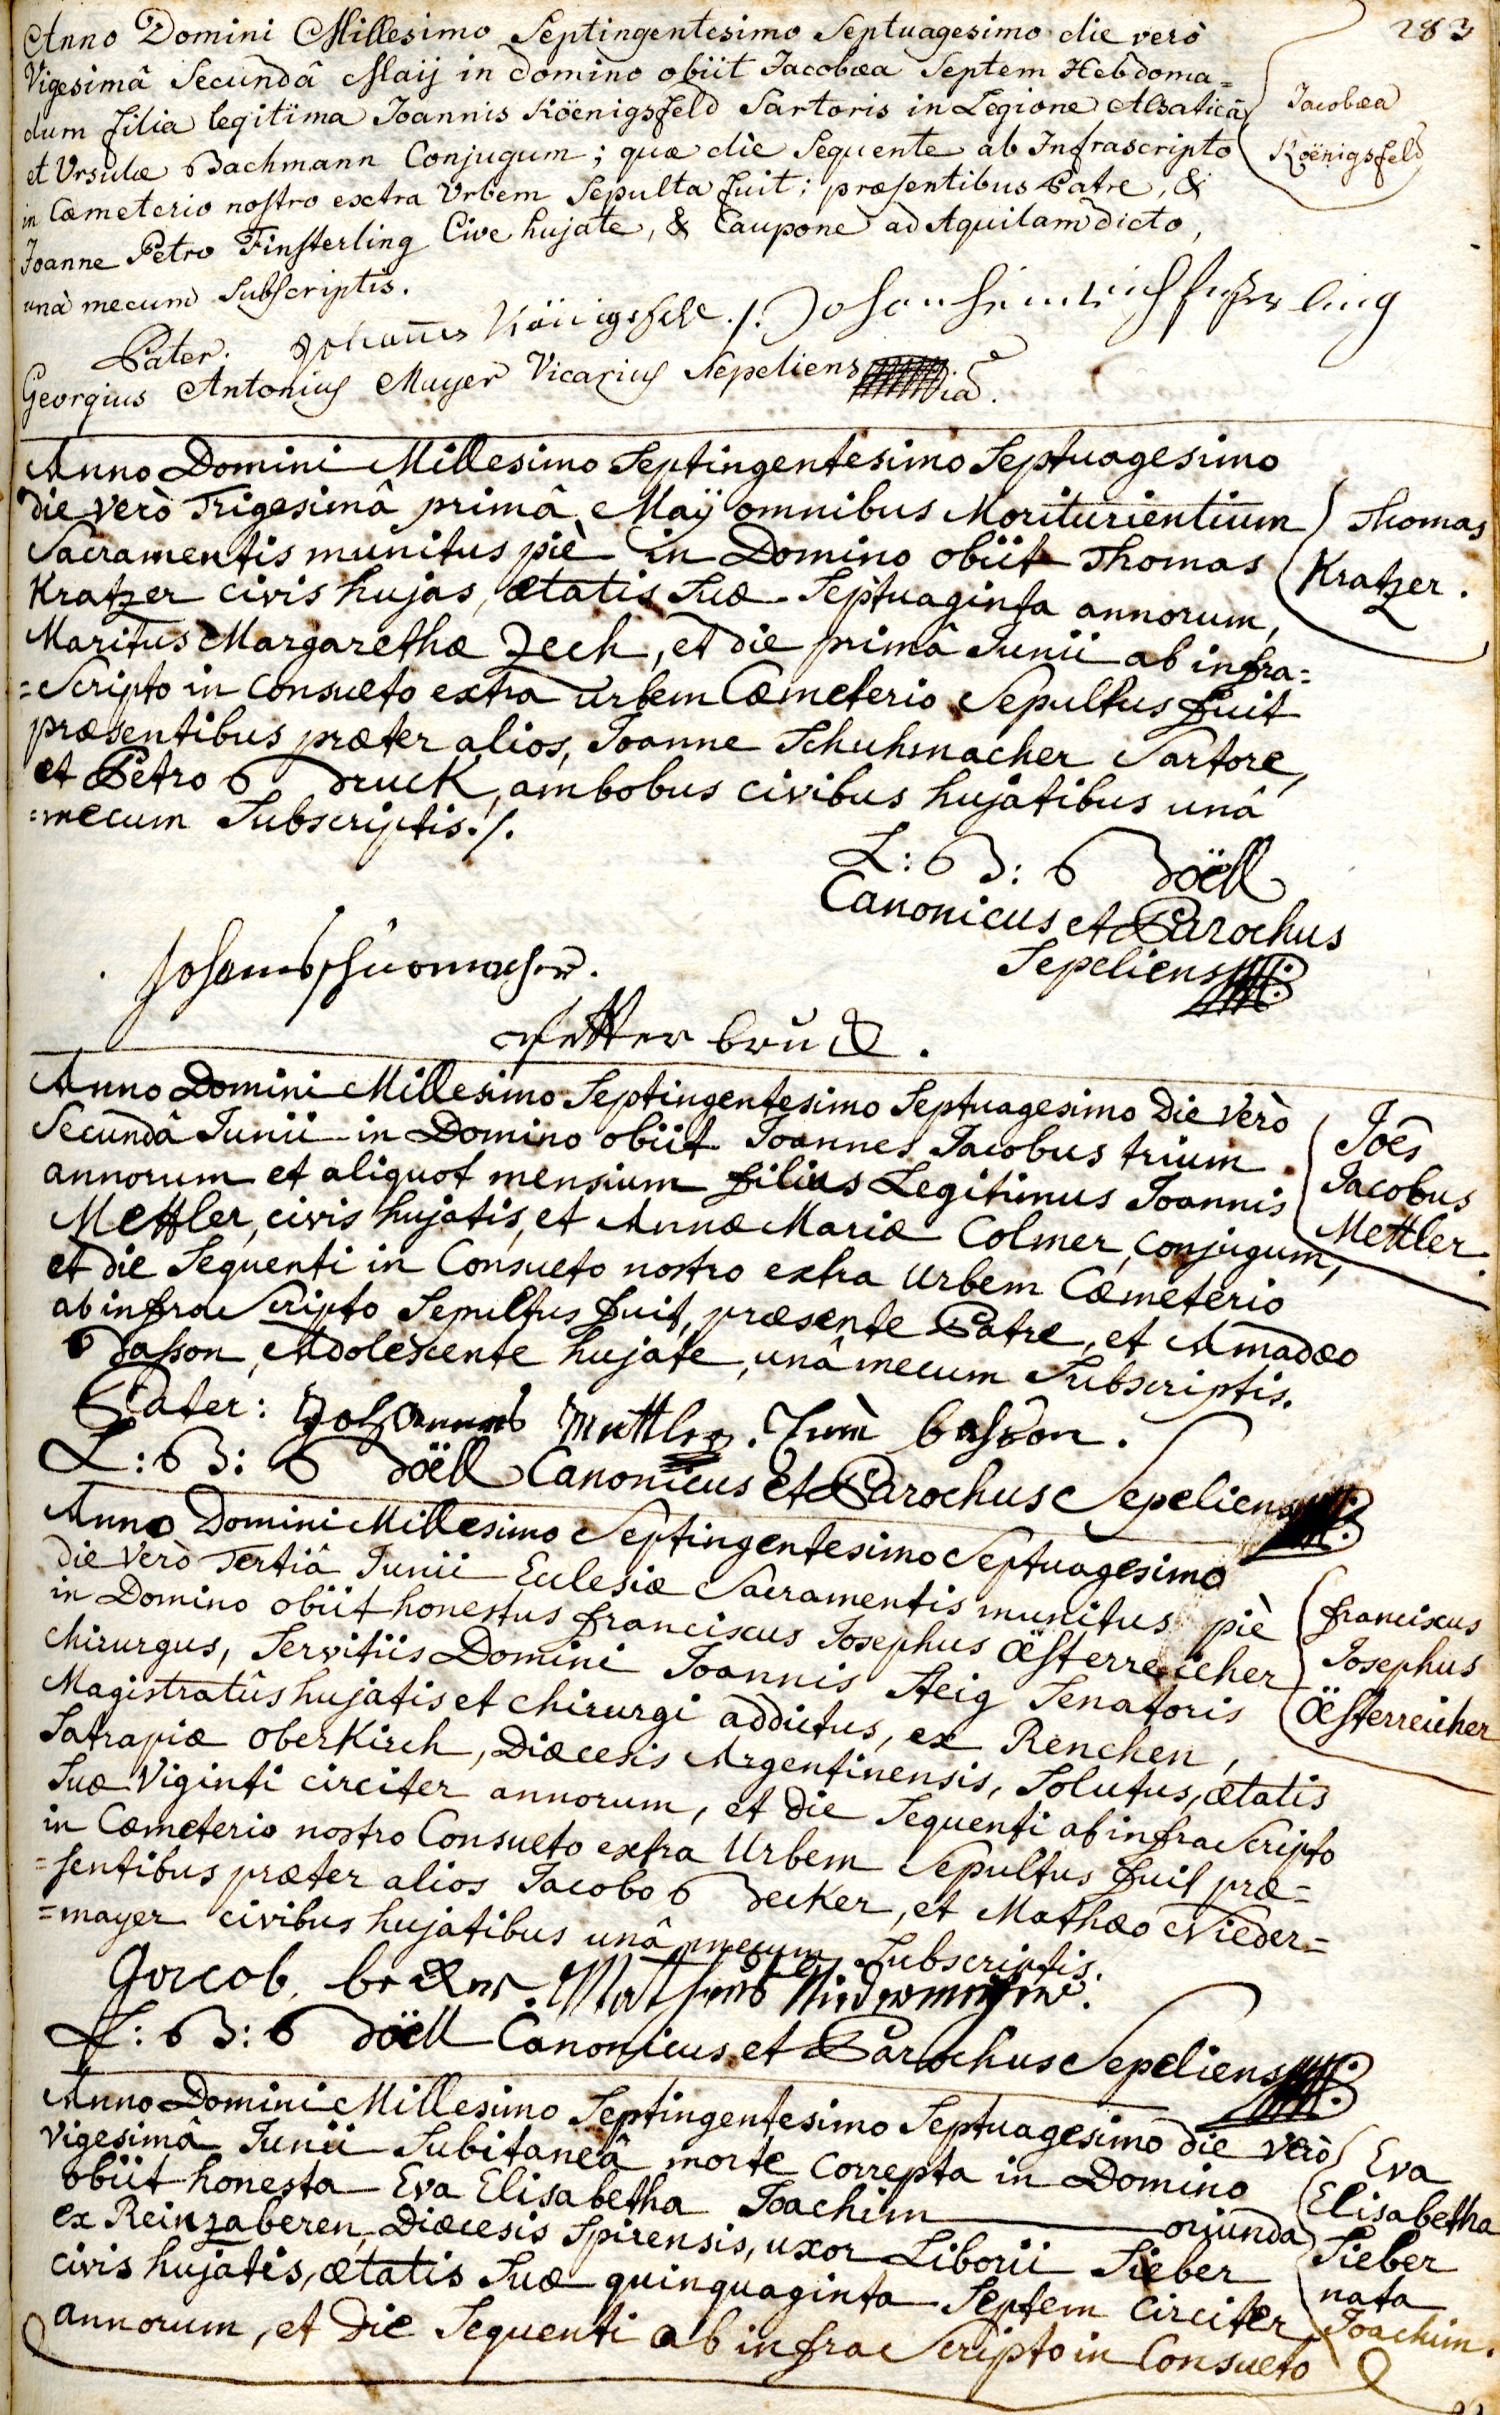 283
Anno Domini Millesimo Septingentesimo Septuagesimo die verò
Vigesimâ Secundâ Maij in domino obiit Jacobæa Septem Hebdoma=
dum filia legitima Joannis Köenigsfeld Sartoris in Legione Alsaticâ
et Ursulæ Bachmann Conjugum; quæ die Sequente ab Infrascripto
in Cæmeterio nostro exctra Urbem Sepulta fuit; præsentibus Patre, &
Joanne Petro Finsterling Cive hujate, & Caupone ad Aquilam dicto,
unà mecum Subscriptis.
Jacobæa
Köenigsfeld
Pater. Johannes Königsfeld ./. Johan Heinrich finsterling
Georgius Antonius Mayer Vicarius Sepeliens
Anno Domini Millesimo Septingentesimo Septuagesimo
die verò Trigesimâ primâ Maÿ omnibus Moriturientium
Sacramentis munitus piè in Domino obiit Thomas
Kratzer civis hujas, ætatis Suæ Septuaginta annorum,
Maritus Margarethæ Zech, et die primâ Junii ab infra=
=Scripto in consueto extra urbem Cæmeterio Sepultus fuit
præsentibus præter alios, Joanne Schuhmacher Sartore,
et Petro Bruck, ambobus civibus hujatibus unâ
=mecum Subscriptis./.
Thomas
Kratzer.
L: B: Böell
Canonicus et Parochus
Sepeliens
Johannes schuomacher.
petter bruck.
Anno Domini Millesimo Septingentesimo Septuagesimo Die Verò
Secundâ Junii in Domino obiit Joannes Jacobus trium
annorum et aliquot mensium filius Legitimus Joannis
Mettler, civis hujatis, et Annæ Mariæ Colmer, conjugum,
et die Sequenti in Consueto nostro extra Urbem Cæmeterio
ab infraScripto Sepultus fuit, præsente Patre, et Amadæo
Basson, Adolescente hujate, unâ mecum Subscriptis.
Joês
Jacobus
Mettler.
Pater: Johannes Mettler. basson.
L: B: Böell Canonicus et Parochus Sepeliens
Anno Domini Millesimo Septingentesimo Septuagesimo
die Verò Tertiâ Junii Eclesiæ Sacramentis munitus piè
in Domino obiit honestus franciscus Josephus Öesterreicher
chirurgus, Servitiis Domini Joannis Steig Senatoris
Magistratûs hujatis et chirurgi addictus, ex Renchen,
Satrapiæ OberKirch, Diæcesis Argentinensis, Solutus, ætatis
Suæ Viginti circiter annorum, et die Sequenti ab infraScripto
in Cæmeterio nostro Consueto extra Urbem Sepultus fuit præ=
=sentibus præter alios Jacobo Becker, et Mathæo Nieder=
=mayer civibus hujatibus unâ mecum Subscriptis.
franciscus
Josephus
Öesterreicher
Jacob. becker. Matheus Niedermeyer.
L: B: Böell Canonicus et Parochus Sepeliens
Anno Domini Millesimo Septingentesimo Septuagesimo die Verò
Vigesimâ Junii Subitaneâ morte correpta in Domino
obiit honesta Eva Elisabetha Joachim oriunda
ex Reinzaberen, Diæcesis Spirensis, uxor Liborii Sieber
civis hujatis, ætatis Suæ quinquaginta Septem circiter
annorum, et Die Sequenti ab infraScripto in Consueto
Eva
Elisabetha
Sieber
nata
Joachim.